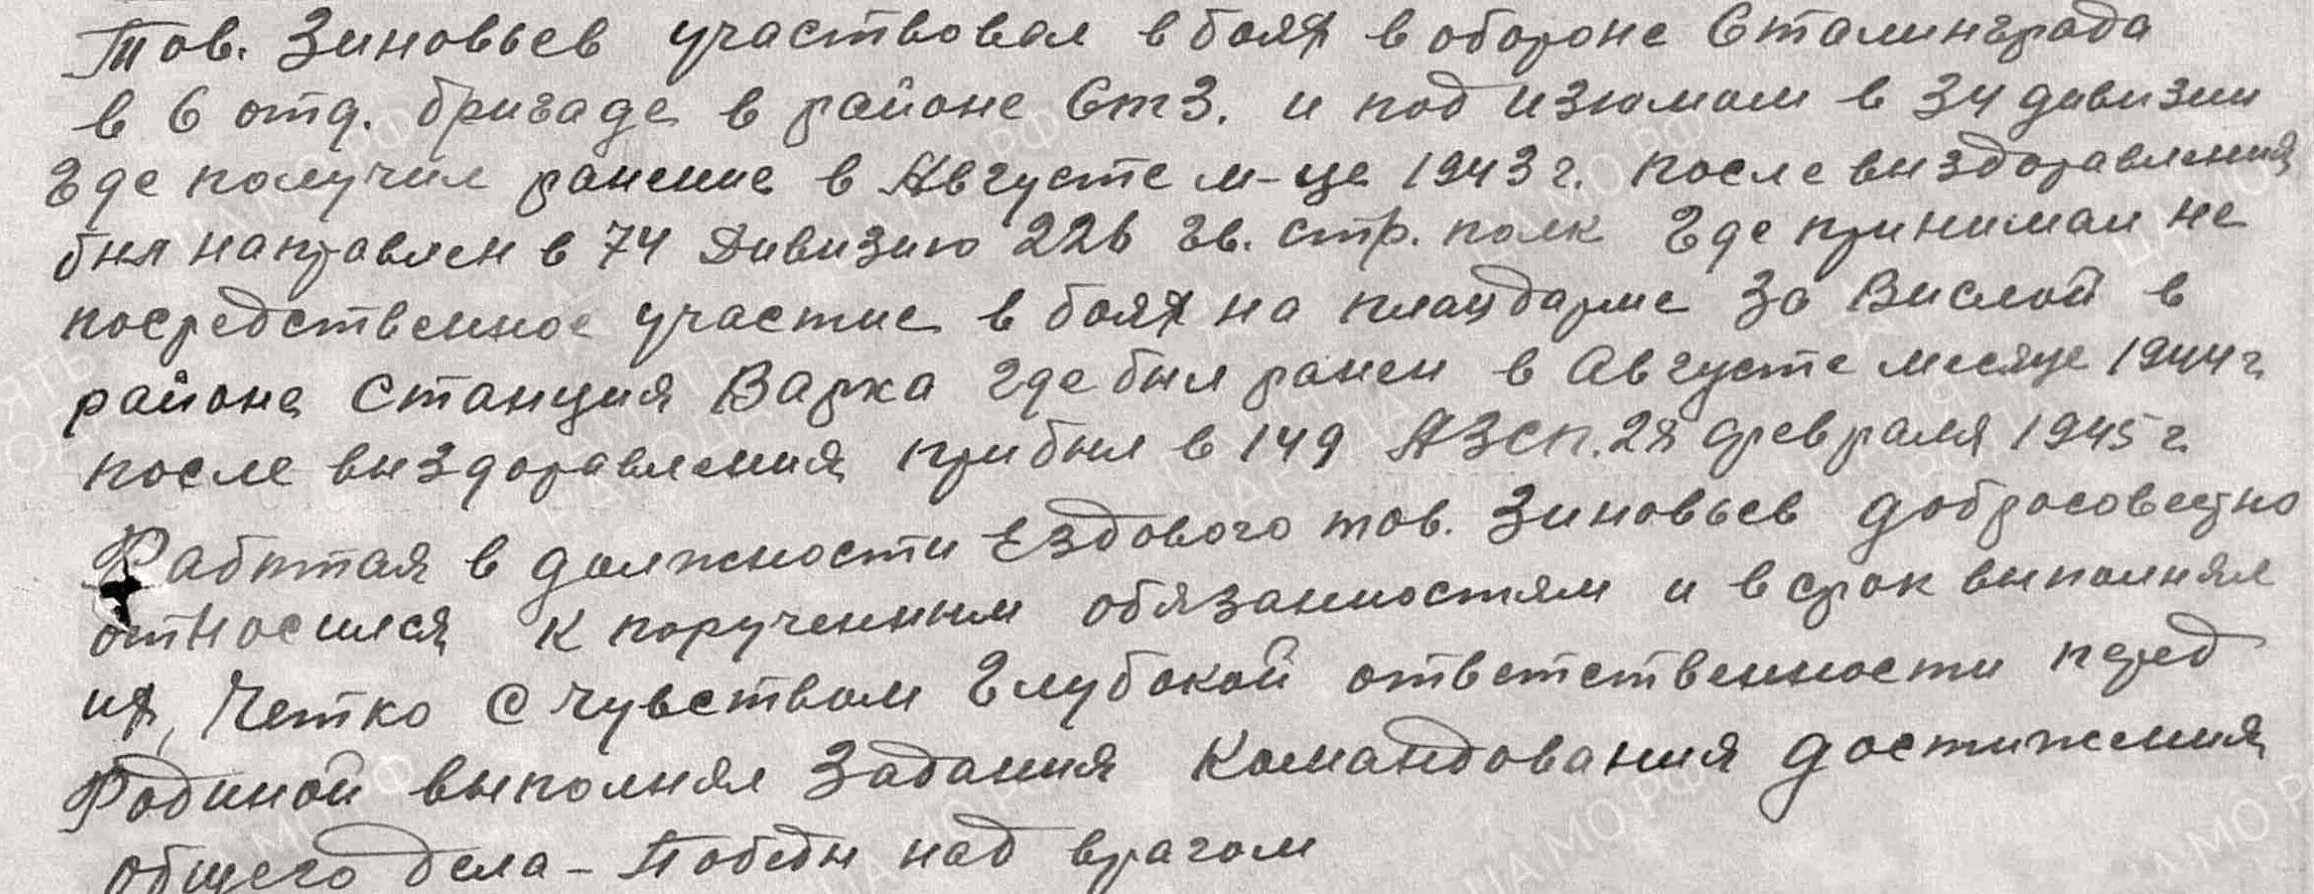 Тов. Зиновьев участвовал в боях в обороне Сталинграда
в 6 отд. бригаде в районе Стз. и под изюмом в 34 дивизии
Где получил ранение в Августе м-це 1943 г. после выздоравления
был направлен в 74 Дивизию 226 гв. стр. полк Где принимал не
посредственное участие в боях на плацдарме за Вислой в
районе Станция Варка где был ранен в Августе месяце 1944 г
после выздоравления прибыл в 149 АЗСП. 28 февраля 1945 г.
Работая в должности Ездового тов. Зиновьев добросовестно
относился к порученным обязанностям и в срок выполнял
их, Четко с чувством глубокой ответственности перед
Родиной выполнял задания командования достижения
общего дела - Победы над врагом